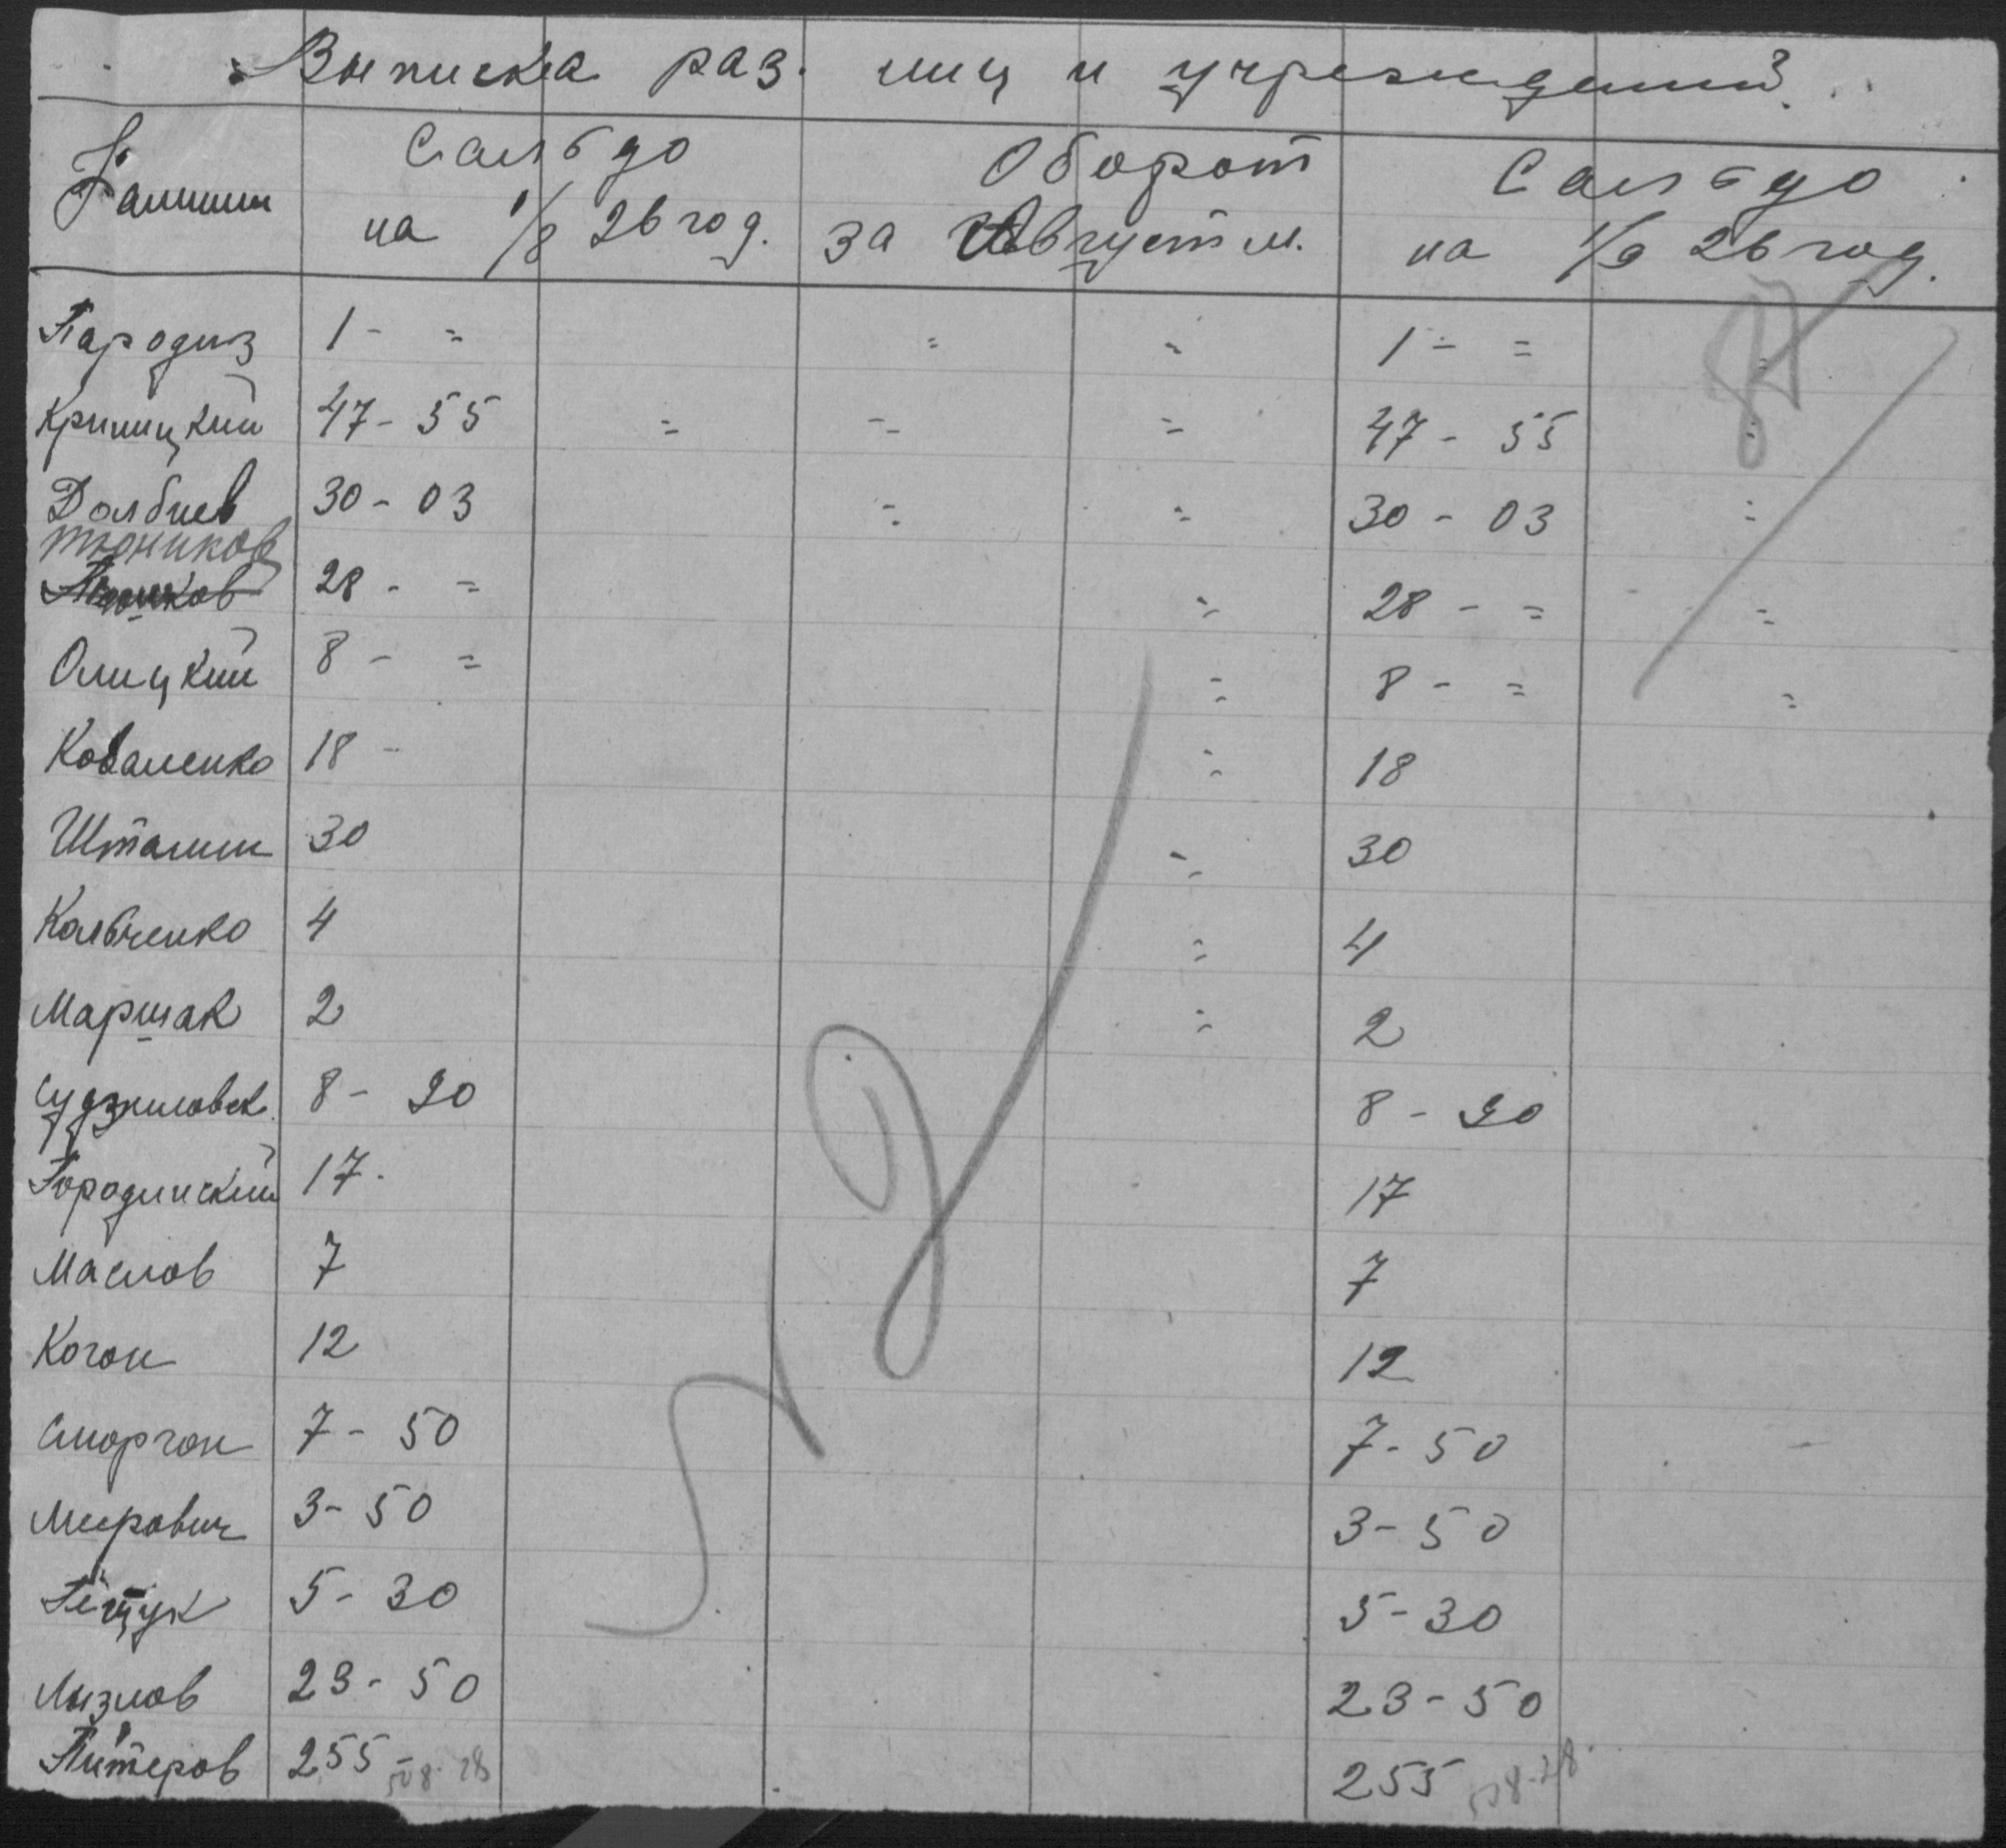 Выписка раз. лиц и учреждений.
Фамилии Сальдо на 1/8 26 год. Оборот за Август м. Сальдо на 1/9 26 год.
Пародиз 1 - = = = 1 - = =
Криницкий 47 - 55 = = = 47 - 55 =
Долбнев 30 - 03 = = 30 - 03 =
Тюников
28 - = = 28 - = =
Олицкий 8 - = = 8 - = =
Коваленко 18 - = 18
Штамин 30 = 30
Кольченко 4 = 4
Маршак 2 = 2
Судзиловск. 8 - 20 8 - 20
Городинский 17. 17
Маслов 7 7
Коган 12 12
Сморгон 7 - 50 7 - 50
Меерович 3 - 50 3 - 50
5 - 30 5 - 30
Лызлов 23 - 50 23 - 50
Питеров 255 - 508-28 255 508-28